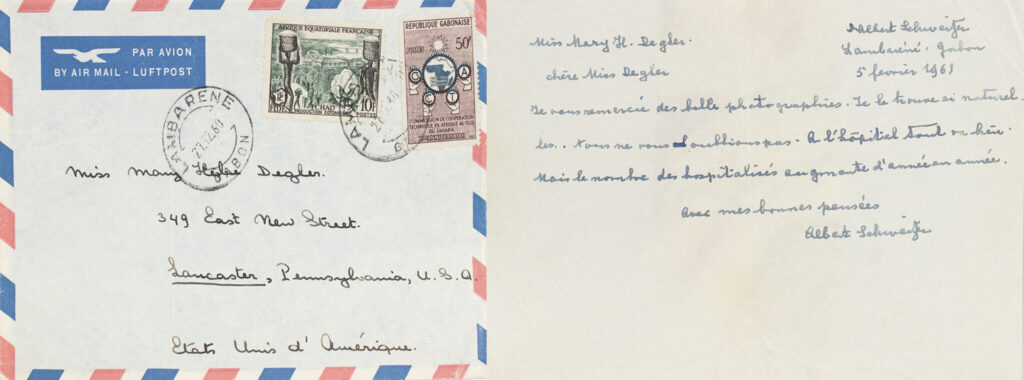 PAR AVION
BY AIR MAIL · LUFTPOST
AFRIQUE EQUATORIALE FRANÇAISE
TCHAD
10F
PRODUCTION COTONNIÈRE
POSTES
REPUBLIQUE GABONAISE
50F
C C T A
COMMISSION DE COOPERATION
TECHNIQUE EN AFRIQUE AU SUD
DU SAHARA
LAMBARENE
GABON
Miss Mary Degler.
349 East New Street.
Lancaster, Pennsylvania, U.S.A.
Etats Unis d'Amérique.
Albert Schweitzer
Miss Mary H. Degler.
Lambaréné. Gabon
5 fevrier 1961
chère Miss Degler
Je vous remercie des belle photographies. Je le trouve si naturel
les. Nous ne vous oublions pas. A l'hôpital tout va bien.
Mais le nombre des hospitalisés augmente d'année en année.
Avec mes bonnes pensées
Albert Schweitzer